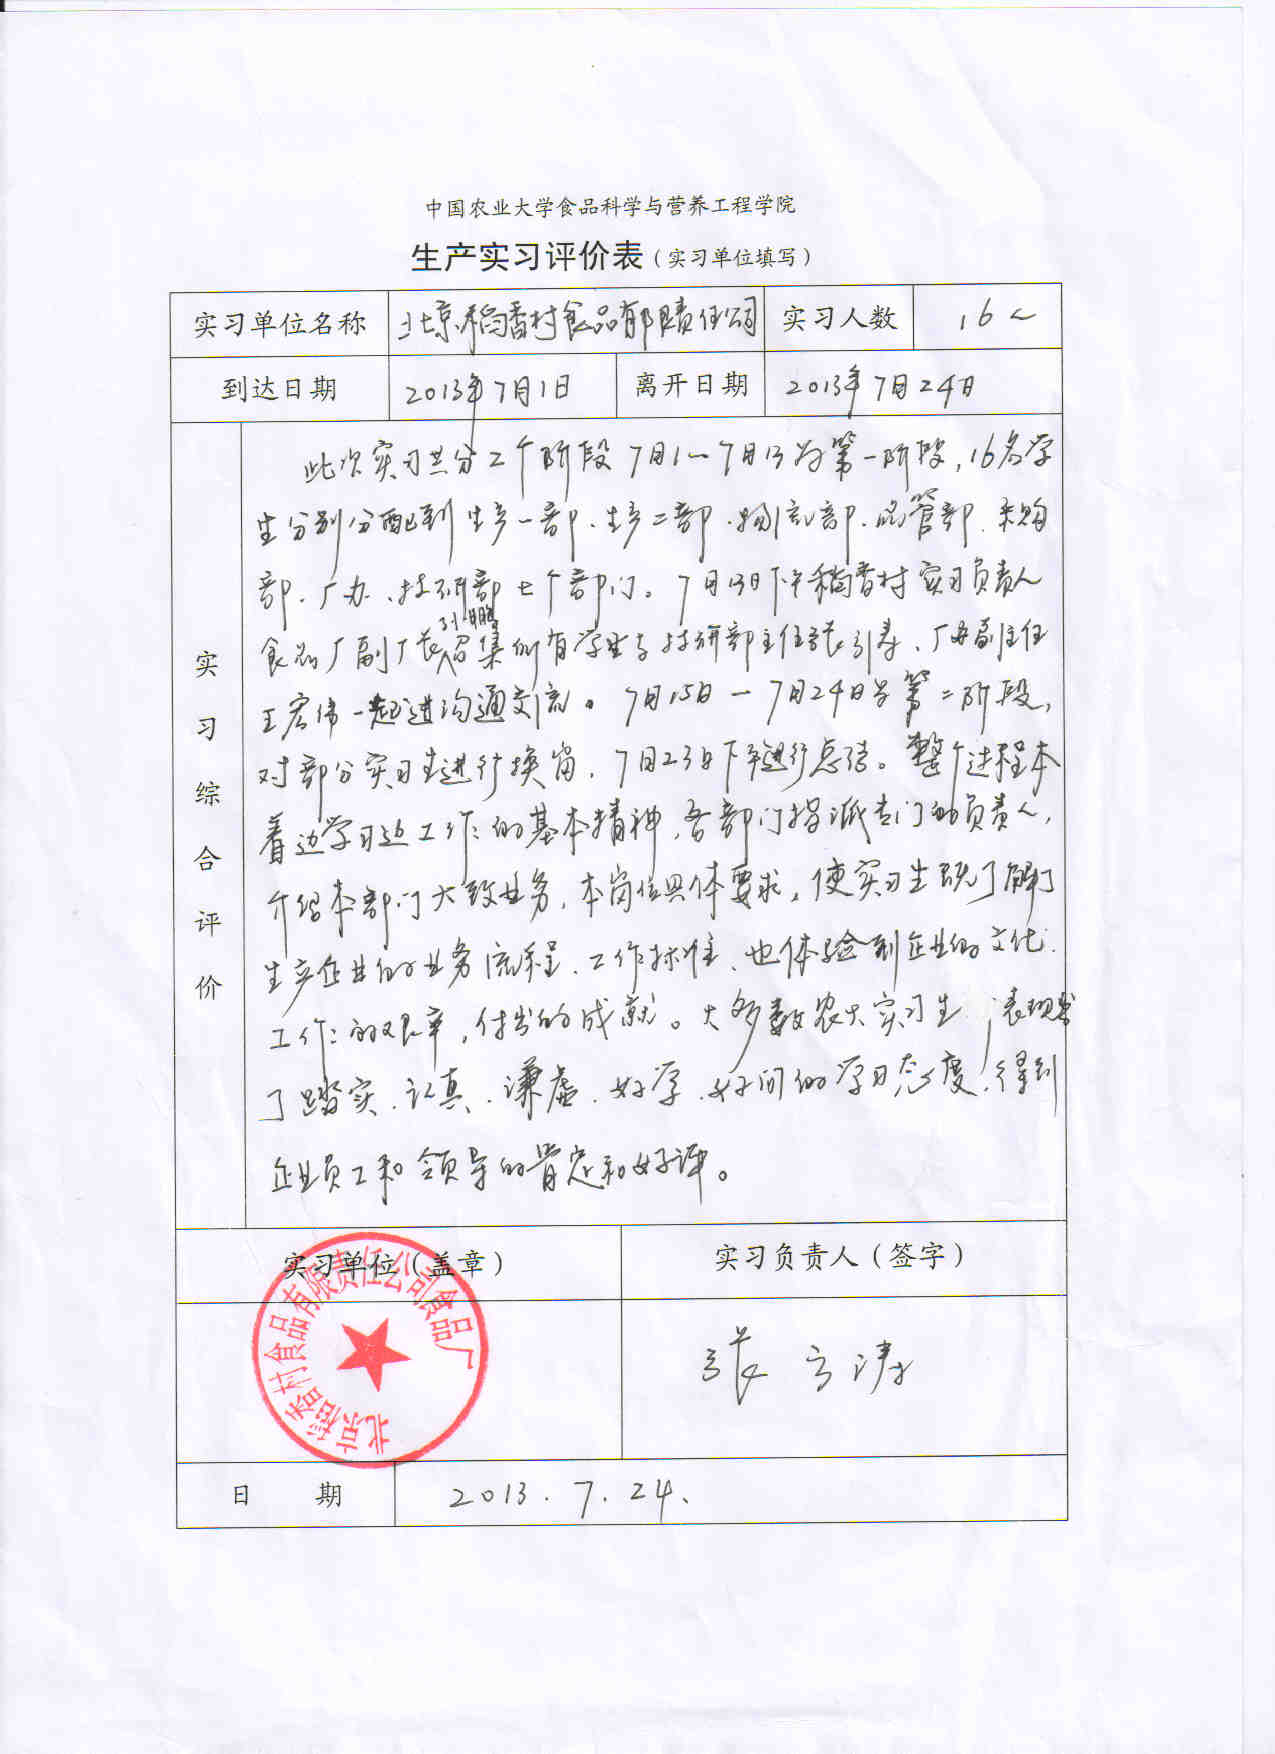 中国农业大学食品科学与营养工程学院
生产实习评价表（实习单位填写）
实习单位名称 北京稻香村食品有限责任公司 实习人数 16人
到达日期 2013年7月1日 离开日期 2013年7月24日
实习综合评价
此次实习共分二个阶段 7月1—7月13为第一阶段，16名学
生分别分配到生产一部、生产二部、物流部、品管部、采购
部、厂办、技研部七个部门。7月13日下午稻香村实习负责人
食品厂副厂长召集所有学生与技研部主任张引寿、厂办副主任
王宏伟一起进沟通交流。7月15日—7月24日为第二阶段，
对部分实习生进行换岗，7月23日下午进行总结。整个过程本
着边学习边工作的基本精神，各部门指派专门的负责人，
介绍本部门大致业务，本岗位具体要求，使实习生既了解了
生产企业的业务流程、工作标准、也体验到企业的文化、
工作的艰辛，付出的成就。大多数农大实习生，表现出
了踏实、认真、谦虚、好学、好问的学习态度，得到
企业员工和领导的肯定和好评。
实习单位（盖章） 实习负责人（签字）
北京稻香村食品有限责任公司食品厂
张
日期 2013.7.24、